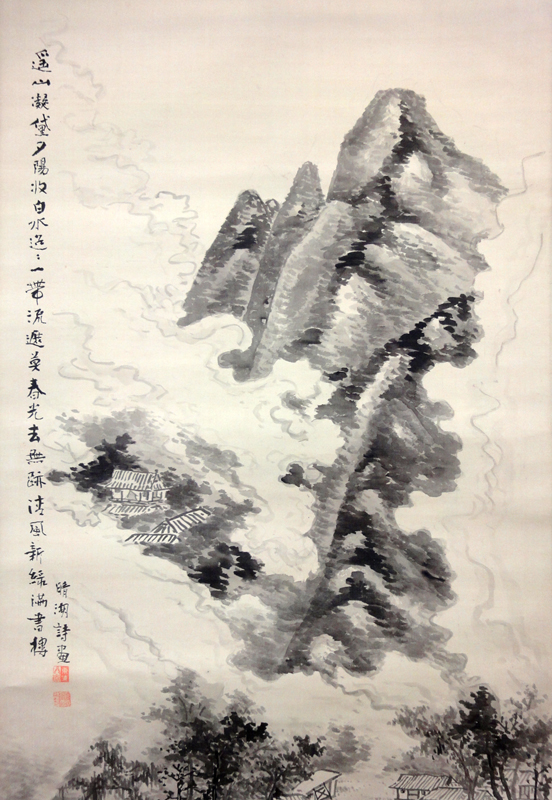 遥山凝黛夕陽收白水迢々一帶流遮莫春光去無跡清風新緑滿書樓
晴湖詩畫